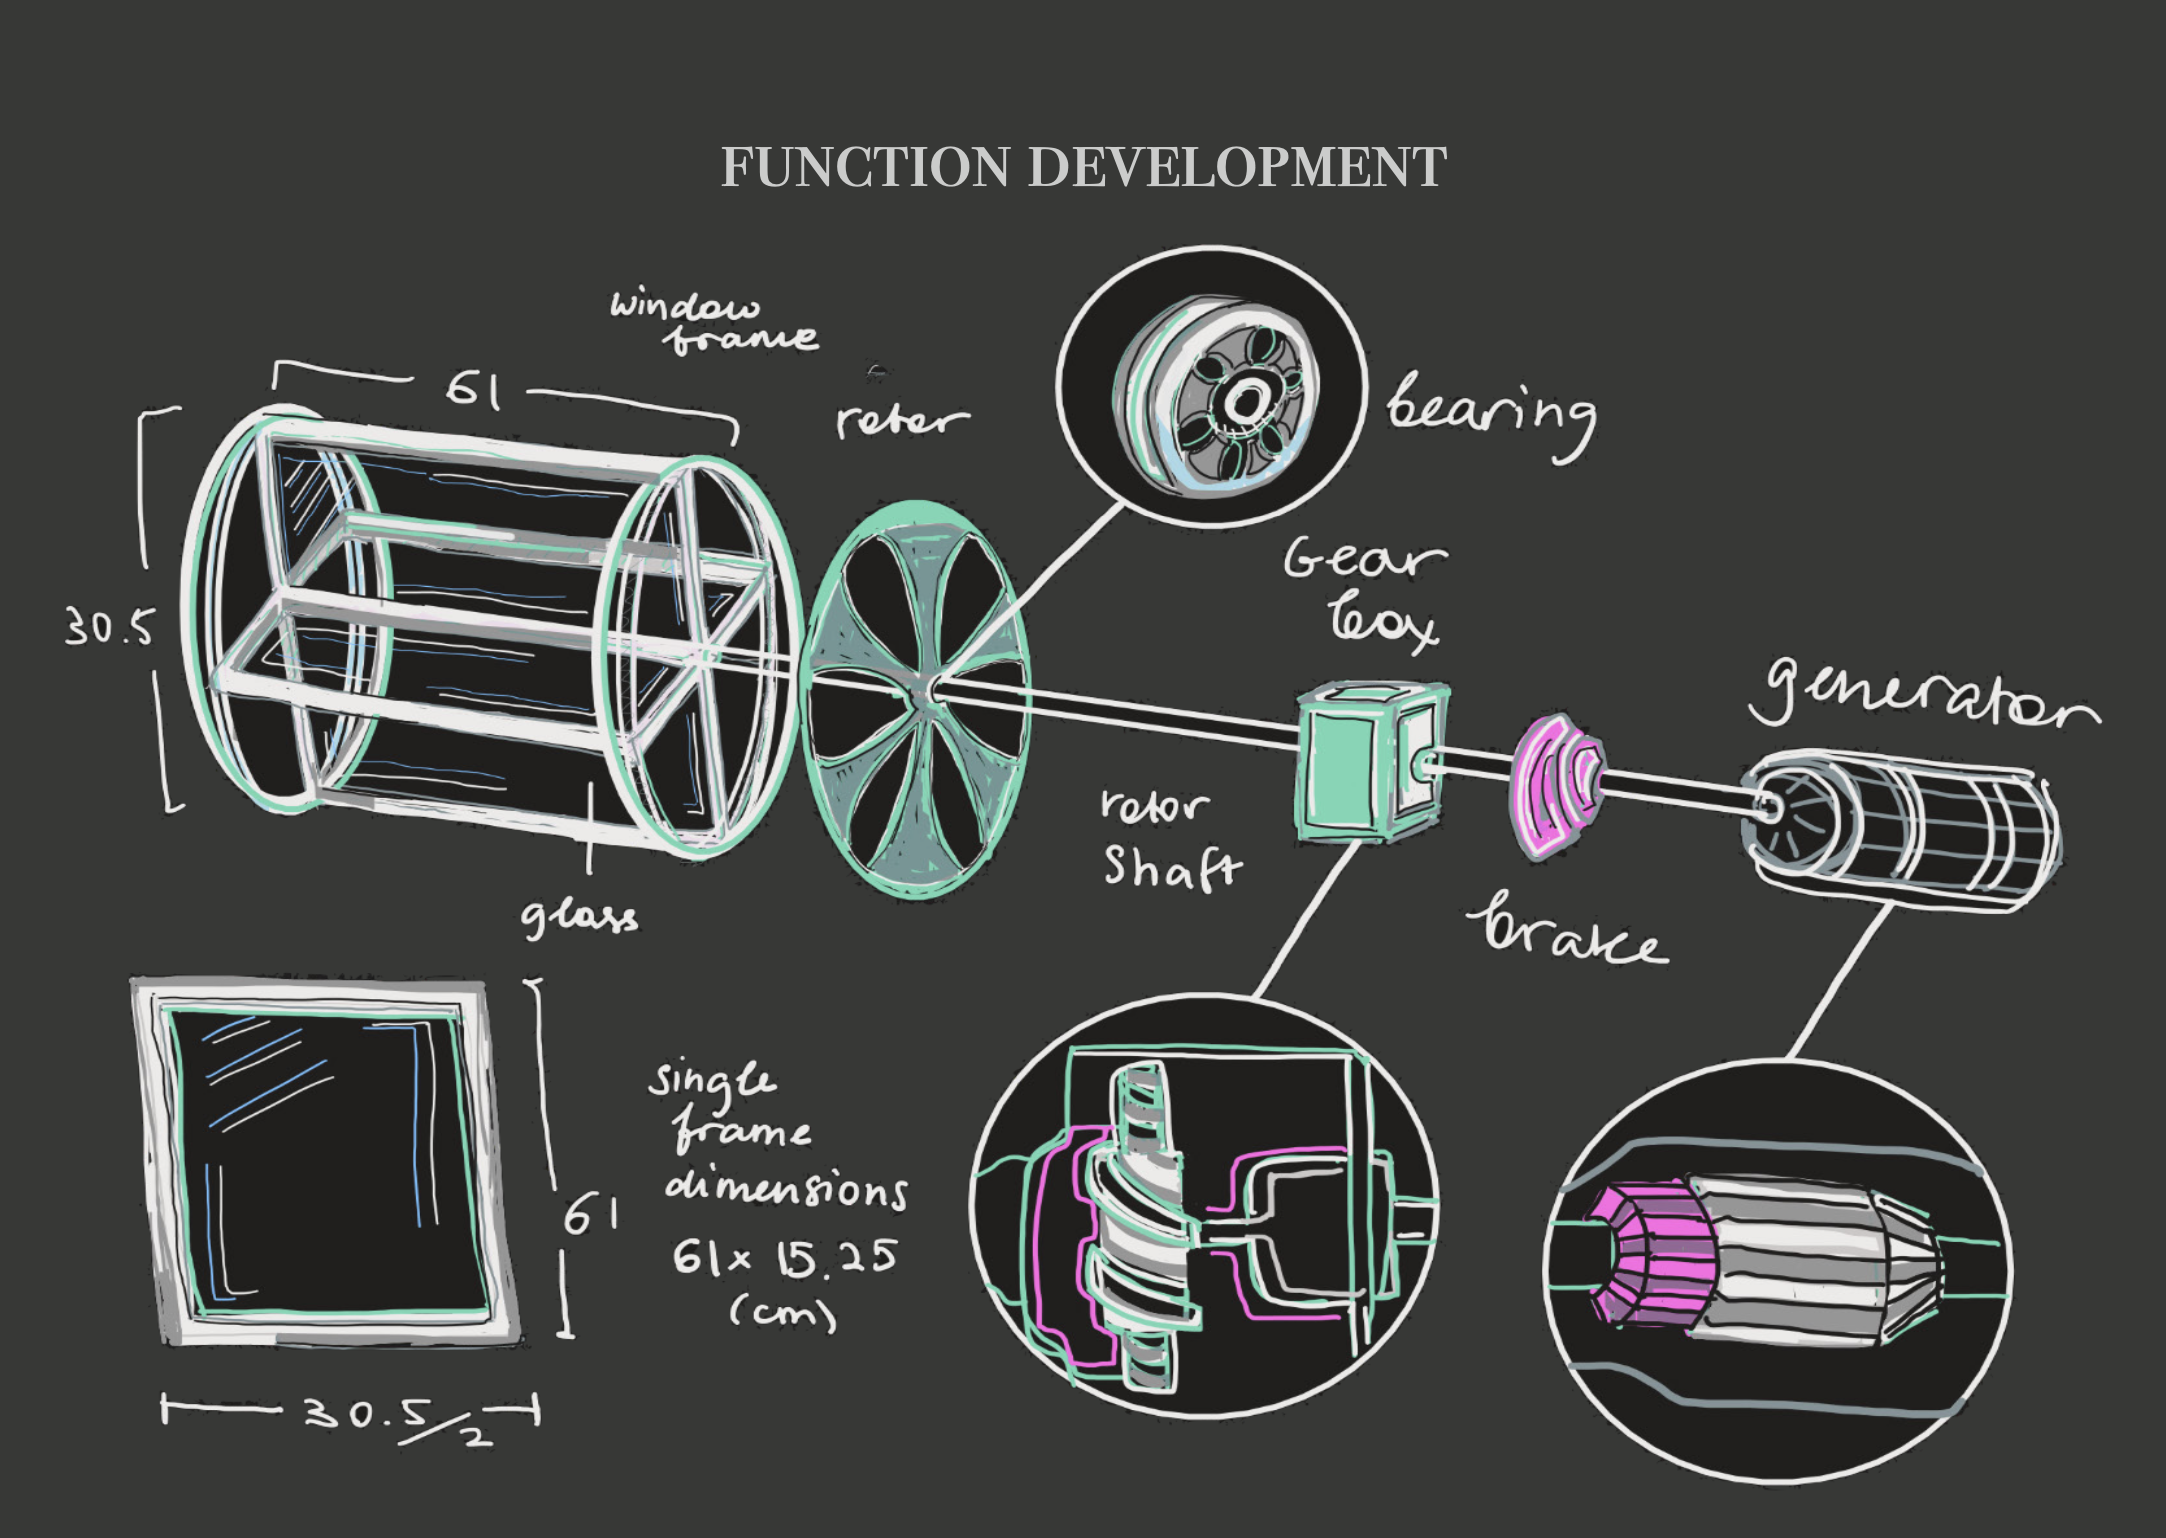 FUNCTION DEVELOPMENT
window
frame
61
reter
bearing
30.5
Gear
box
generator
rotor
Shaft
brake
glass
single
frame
dimensions
61 x 15.25
(cm)
61
30.5/2